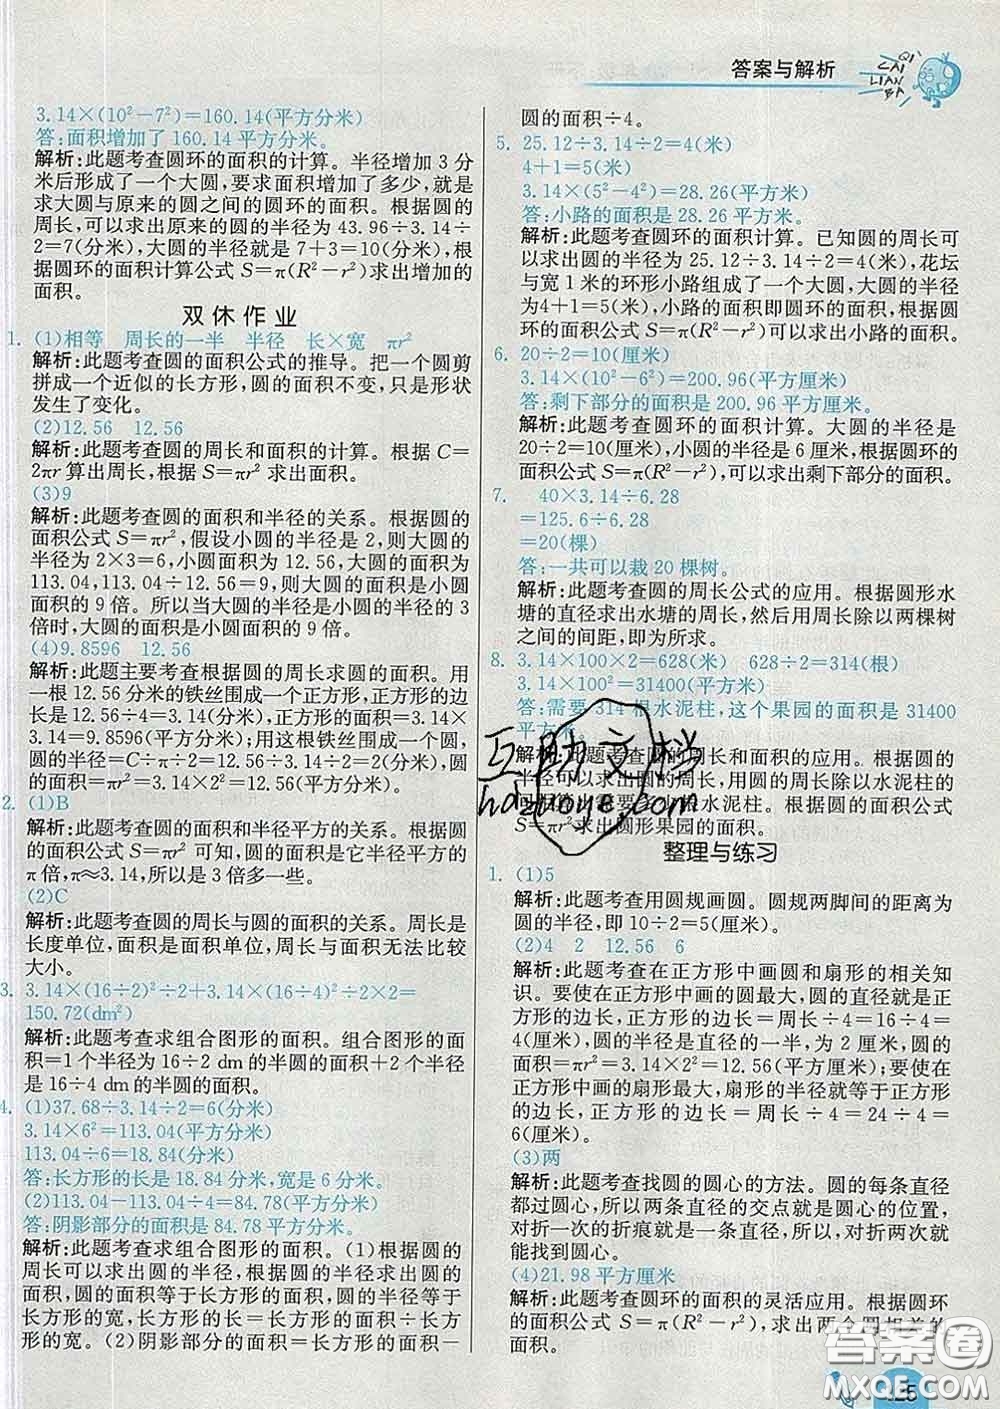 答案与解析
QI CAI LIAN BA
3.14×(10²－7²)＝160.14(平方分米)
答:面积增加了 160.14 平方分米。
解析:此题考查圆环的面积的计算。半径增加 3 分
米后形成了一个大圆，要求面积增加了多少，就是
求大圆与原来的圆之间的圆环的面积。根据圆的
周长，可以求出原来的圆的半径为 43.96÷3.14÷
2＝7(分米)，大圆的半径就是 7＋3＝10(分米)，根
据圆环的面积计算公式 S＝π(R²－r²)求出增加的
面积。
双休作业
1. (1)相等 周长的一半 半径 长×宽 πr²
解析:此题考查圆的面积公式的推导。把一个圆剪
拼成一个近似的长方形，圆的面积不变，只是形状
发生了变化。
(2)12.56 12.56
解析:此题考查圆的周长和面积的计算。根据 C＝
2πr 算出周长，根据 S＝πr² 求出面积。
(3)9
解析:此题考查圆的面积和半径的关系。根据圆的
面积公式 S＝πr²，假设小圆的半径是 2，则大圆的
半径为 2×3＝6，小圆面积为 12.56，大圆的面积为
113.04，113.04÷12.56＝9，则大圆的面积是小圆
面积的 9 倍。所以当大圆的半径是小圆的半径的 3
倍时，大圆的面积是小圆面积的 9 倍。
(4)9.8596 12.56
解析:此题主要考查根据圆的周长求圆的面积。用
一根 12.56 分米的铁丝围成一个正方形，正方形的边
长是 12.56÷4＝3.14(分米)，正方形的面积＝3.14×
3.14＝9.8596(平方分米)；用这根铁丝围成一个圆，
圆的半径＝C÷π÷2＝12.56÷3.14÷2＝2(分米)，
圆的面积＝πr²＝3.14×2²＝12.56(平方分米)。
2. (1)B
解析:此题考查圆的面积和半径平方的关系。根据圆
的面积公式 S＝πr² 可知，圆的面积是它半径平方的
π倍，π≈3.14，所以是 3 倍多一些。
(2)C
解析:此题考查圆的周长与圆的面积的关系。周长是
长度单位，面积是面积单位，周长与面积无法比较
大小。
3. 3.14×(16÷2)²÷2＋3.14×(16÷2÷2)²＝
150.72(dm²)
解析:此题考查求组合图形的面积。组合图形的面
积＝1 个半径为 16÷2 dm 的半圆的面积＋2 个半径
是 16÷4 dm 的半圆的面积。
4. (1)37.68÷3.14÷2＝6(分米)
3.14×6²＝113.04(平方分米)
113.04÷6＝18.84(分米)
答:长方形的长是 18.84 分米，宽是 6 分米。
(2)113.04－113.04÷4＝84.78(平方分米)
答:阴影部分的面积是 84.78 平方分米。
解析:此题考查求组合图形的面积。(1)根据圆的
周长可以求出圆的半径，根据圆的半径求出圆的
面积，圆的面积等于长方形的面积，圆的半径等于
长方形的宽，长方形的长＝长方形的面积÷长方
形的宽。(2)阴影部分的面积＝长方形的面积－
圆的面积÷4。
5. 25.12÷3.14÷2＝4(米)
4＋1＝5(米)
3.14×(5²－4²)＝28.26(平方米)
答:小路的面积是 28.26 平方米。
解析:此题考查圆环的面积计算。已知圆的周长可
以求出圆的半径为 25.12÷3.14÷2＝4(米)，花坛
与宽 1 米的环形小路组成了一个大圆，大圆的半径
为4＋1＝5(米)，小路的面积即圆环的面积，根据圆
环的面积公式 S＝π(R²－r²)可以求出小路的面积。
6. 20÷2＝10(厘米)
3.14×(10²－6²)＝200.96(平方厘米)
答:剩下部分的面积是 200.96 平方厘米。
解析:此题考查圆环的面积计算。大圆的半径是
20÷2＝10(厘米)，小圆的半径是 6 厘米，根据圆环的
面积公式 S＝π(R²－r²)，可以求出剩下部分的面积。
7. 40×3.14÷6.28
＝125.6÷6.28
＝20(棵)
答:一共可以栽 20 棵树。
解析:此题考查圆的周长公式的应用。根据圆形水
塘的直径求出水塘的周长，然后用周长除以两棵树
之间的间距，即为所求。
8. 3.14×100×2＝628(米) 628÷2＝314(根)
3.14×100²＝31400(平方米)
答:需要 314 根水泥柱，这个果园的面积是 31400
平方米。
解析:此题考查圆的周长和面积的应用。根据圆的
半径可以求出圆的周长，用圆的周长除以水泥柱的
间距算出需要多少根水泥柱。根据圆的面积公式
S＝πr²求出圆形果园的面积。
整理与练习
1. (1)5
解析:此题考查用圆规画圆。圆规两脚间的距离为
圆的半径，即 10÷2＝5(厘米)。
(2)4 2 12.56 6
解析:此题考查在正方形中画圆和扇形的相关知
识。要使在正方形中画的圆最大，圆的直径就是正
方形的边长，正方形的边长＝周长÷4＝16÷4＝
4(厘米)，圆的半径是直径的一半，为 2 厘米，圆的
面积＝πr²＝3.14×2²＝12.56(平方厘米)。要使在
正方形中画的扇形最大，扇形的半径就等于正方形
的边长，正方形的边长＝周长÷4＝24÷4＝
6(厘米)。
(3)两
解析:此题考查找圆的圆心的方法。圆的每条直径
都过圆心，所以两条直径的交点就是圆心的位置，
对折一次的折痕就是一条直径，所以对折两次就能
能找到圆心。
(4)21.98 平方厘米
解析:此题考查圆环的面积的灵活应用。根据圆环
的面积公式 S＝π(R²－r²)，求出两个圆相差的
面积。
互助文档
hdzuoye.com
答案圈
MXQE.COM
125